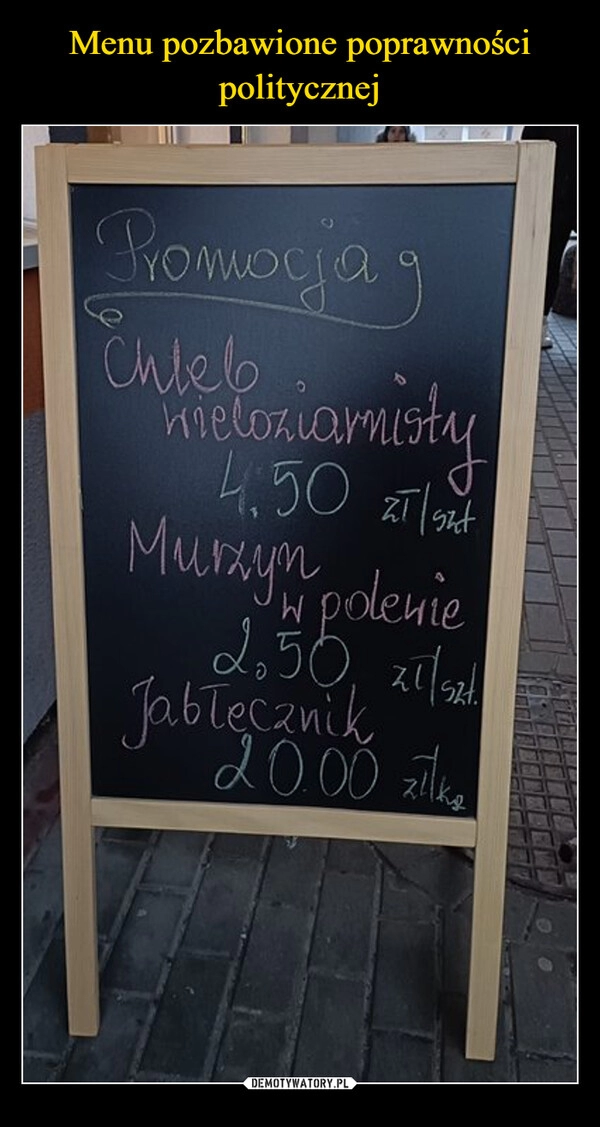 Menu pozbawione poprawności
politycznej
Promocja
Chleb
wieloziarnisty
4.50 zł/szt
Murzyn
w polewie
2,50 zł/szt.
Jabłecznik
20.00 zł/kg
DEMOTYWATORY.PL